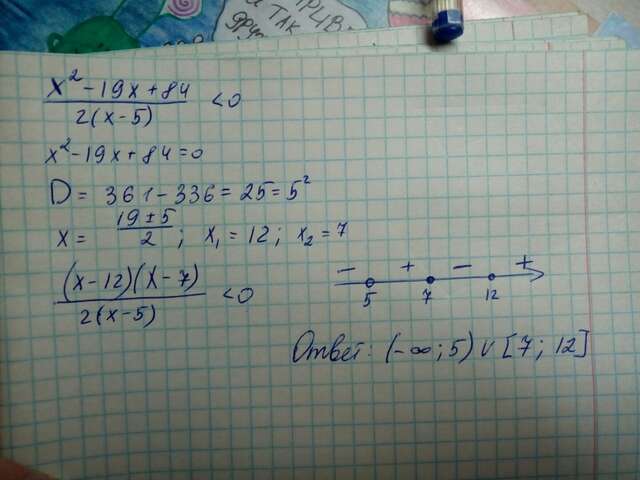 ПРИВ
И ТАК
друг
x² - 19x + 84 / 2(x - 5) < 0
x² - 19x + 84 = 0
D = 361 - 336 = 25 = 5²
x = 19 ± 5 / 2 ; x₁ = 12 ; x₂ = 7
(x - 12)(x - 7) / 2(x - 5) < 0
- + - +
5 7 12
Ответ: (-∞; 5) ∪ [7; 12]